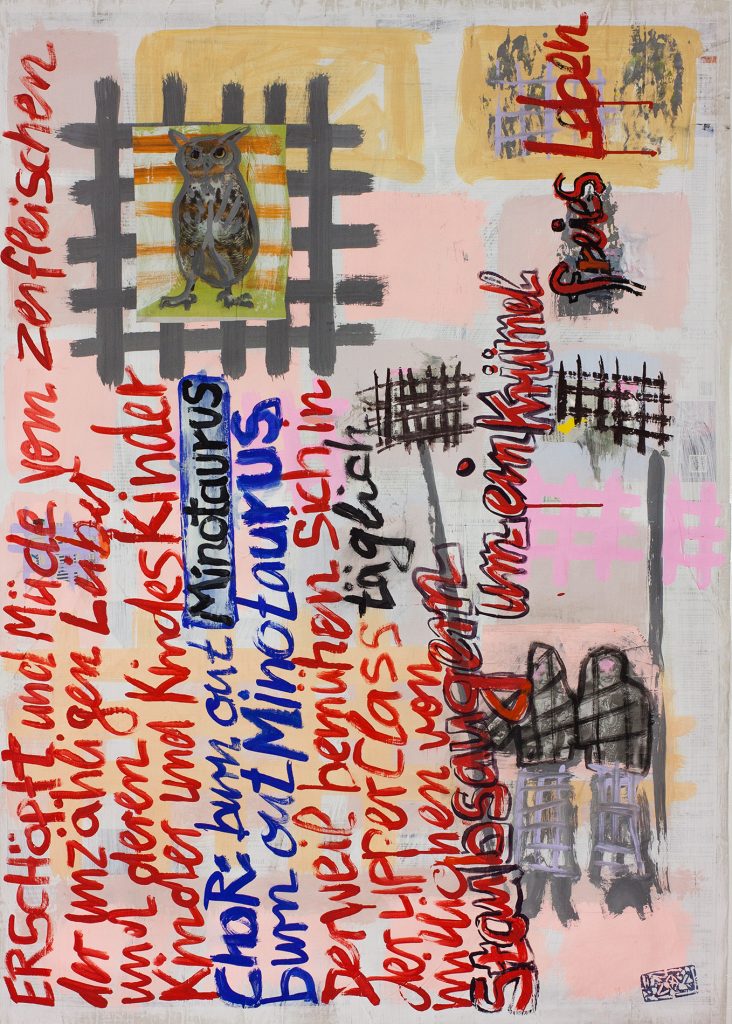 ERSCHÖPFT und Müde vom zerfleischen
der unzähligen Leiber
und deren
Kinder und KindesKinder
ChoR: burn out Minotaurus
burn out Minotaurus
Derweil bemühen sich in
der UPPER Class täglich
millionen von
Staubsaugern um ein Krümel
freies Leben